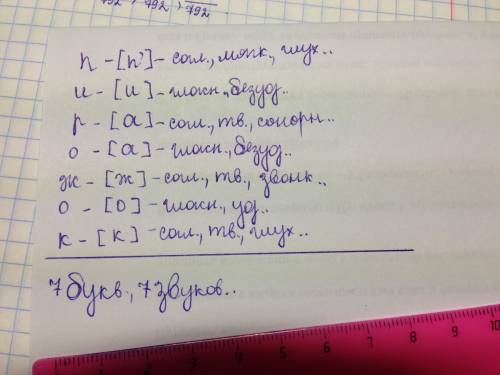 792, 792, 792
п - [п'] - согл., мягк., глух..
и - [и] - гласн., безуд..
р - [а] - согл., тв., сонорн..
о - [а] - гласн., безуд..
ж - [ж] - согл., тв., звонк..
о - [о] - гласн., уд..
к - [к] - согл., тв., глух..
7 букв., 7 звуков..
1 2 3 4 5 6 7 8 9 10